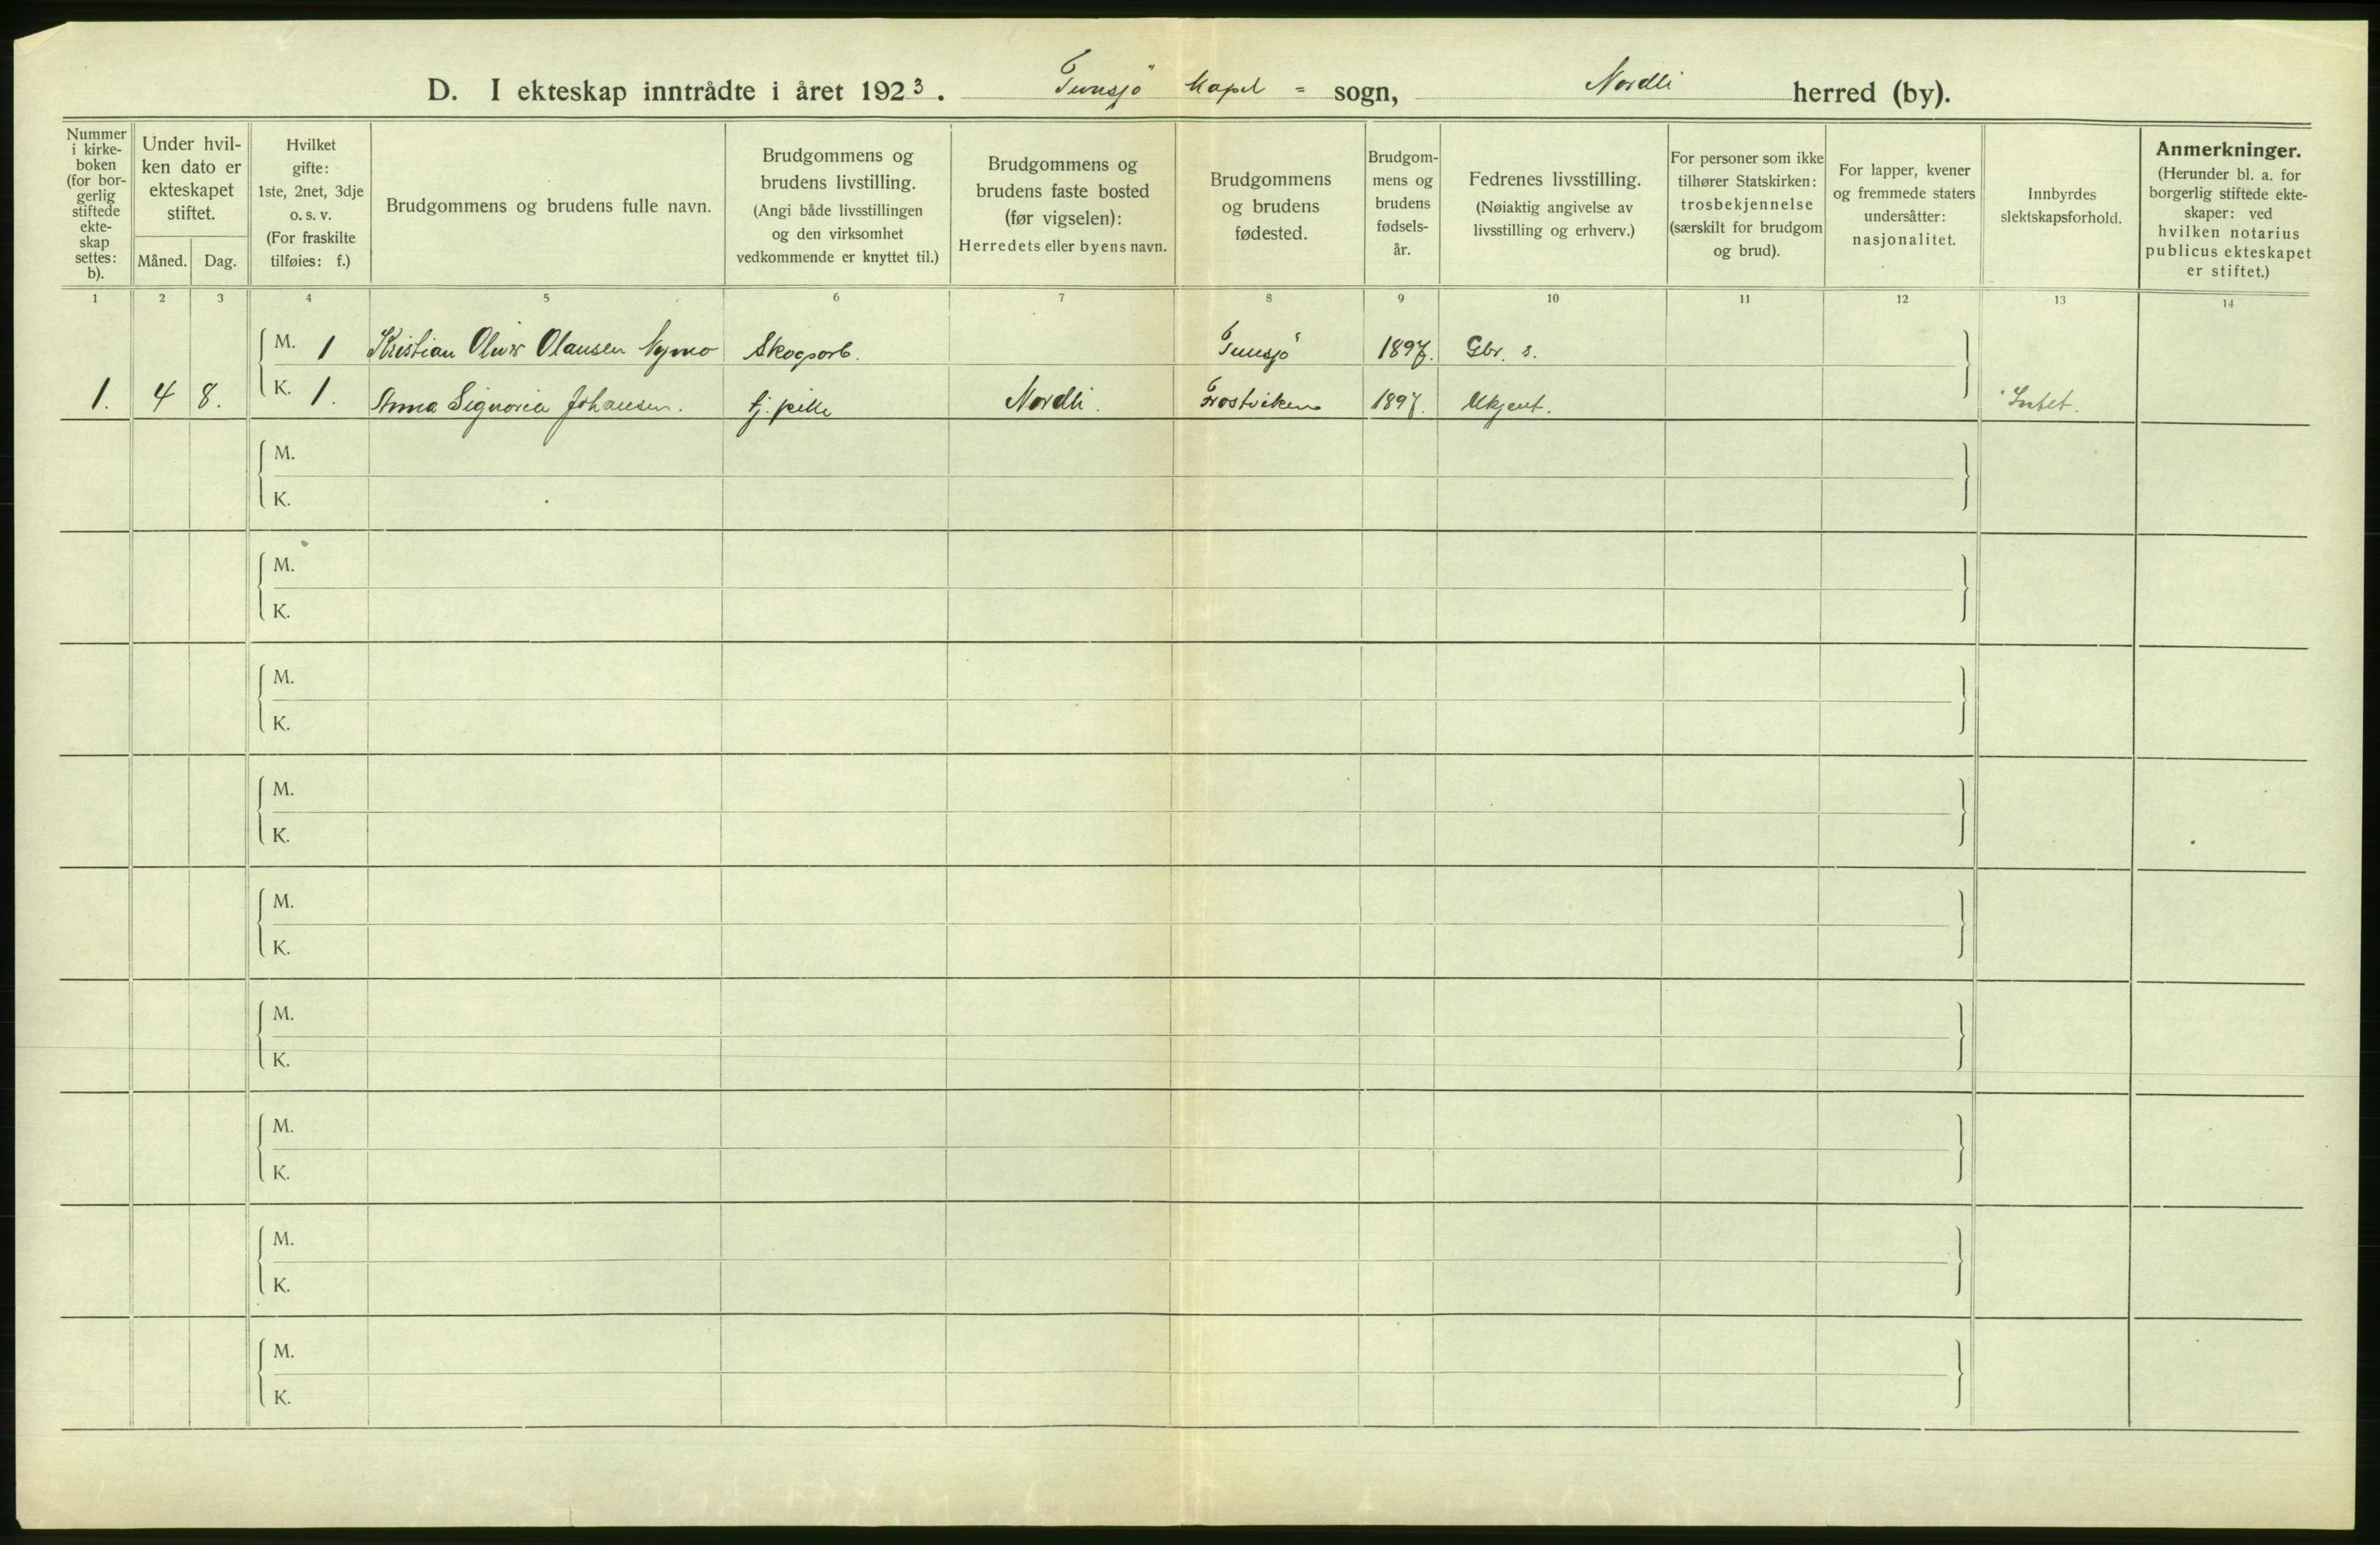 D. I ekteskap inntrådte i året 1923. Tunsjö kapel = sogn, Nordli herred (by).
Nummer i kirke-boken (for bor-gerlig stiftede ekte-skap settes: b).
Under hvil-ken dato er ekteskapet stiftet.
Måned. Dag.
Hvilket gifte: 1ste, 2net, 3dje o. s. v. (For fraskilte tilføies: f.)
Brudgommens og brudens fulle navn.
Brudgommens og brudens livstilling. (Angi både livsstillingen og den virksomhet vedkommende er knyttet til.)
Brudgommens og brudens faste bosted (før vigselen): Herredets eller byens navn.
Brudgommens og brudens fødested.
Brudgom-mens og brudens fødsels-år.
Fedrenes livsstilling. (Nøiaktig angivelse av livsstilling og erhverv.)
For personer som ikke tilhører Statskirken: trosbekjennelse (særskilt for brudgom og brud).
For lapper, kvener og fremmede staters undersåtter: nasjonalitet.
Innbyrdes slektskapsforhold.
Anmerkninger. (Herunder bl. a. for borgerlig stiftede ekte-skaper: ved hvilken notarius publicus ekteskapet er stiftet.)
1 2 3 4 5 6 7 8 9 10 11 12 13 14
M. 1 Kristian Oluv Olausen Nymo Skogsarb. Tunsjö 1897. Gbr. s.
1. 4 8. K. 1. Anna Signoria Johansen. tj. pike Nordli. Frostviken 1897. Ukjent. Intet.
M.
K.
M.
K.
M.
K.
M.
K.
M.
K.
M.
K.
M.
K.
M.
K.
M.
K.